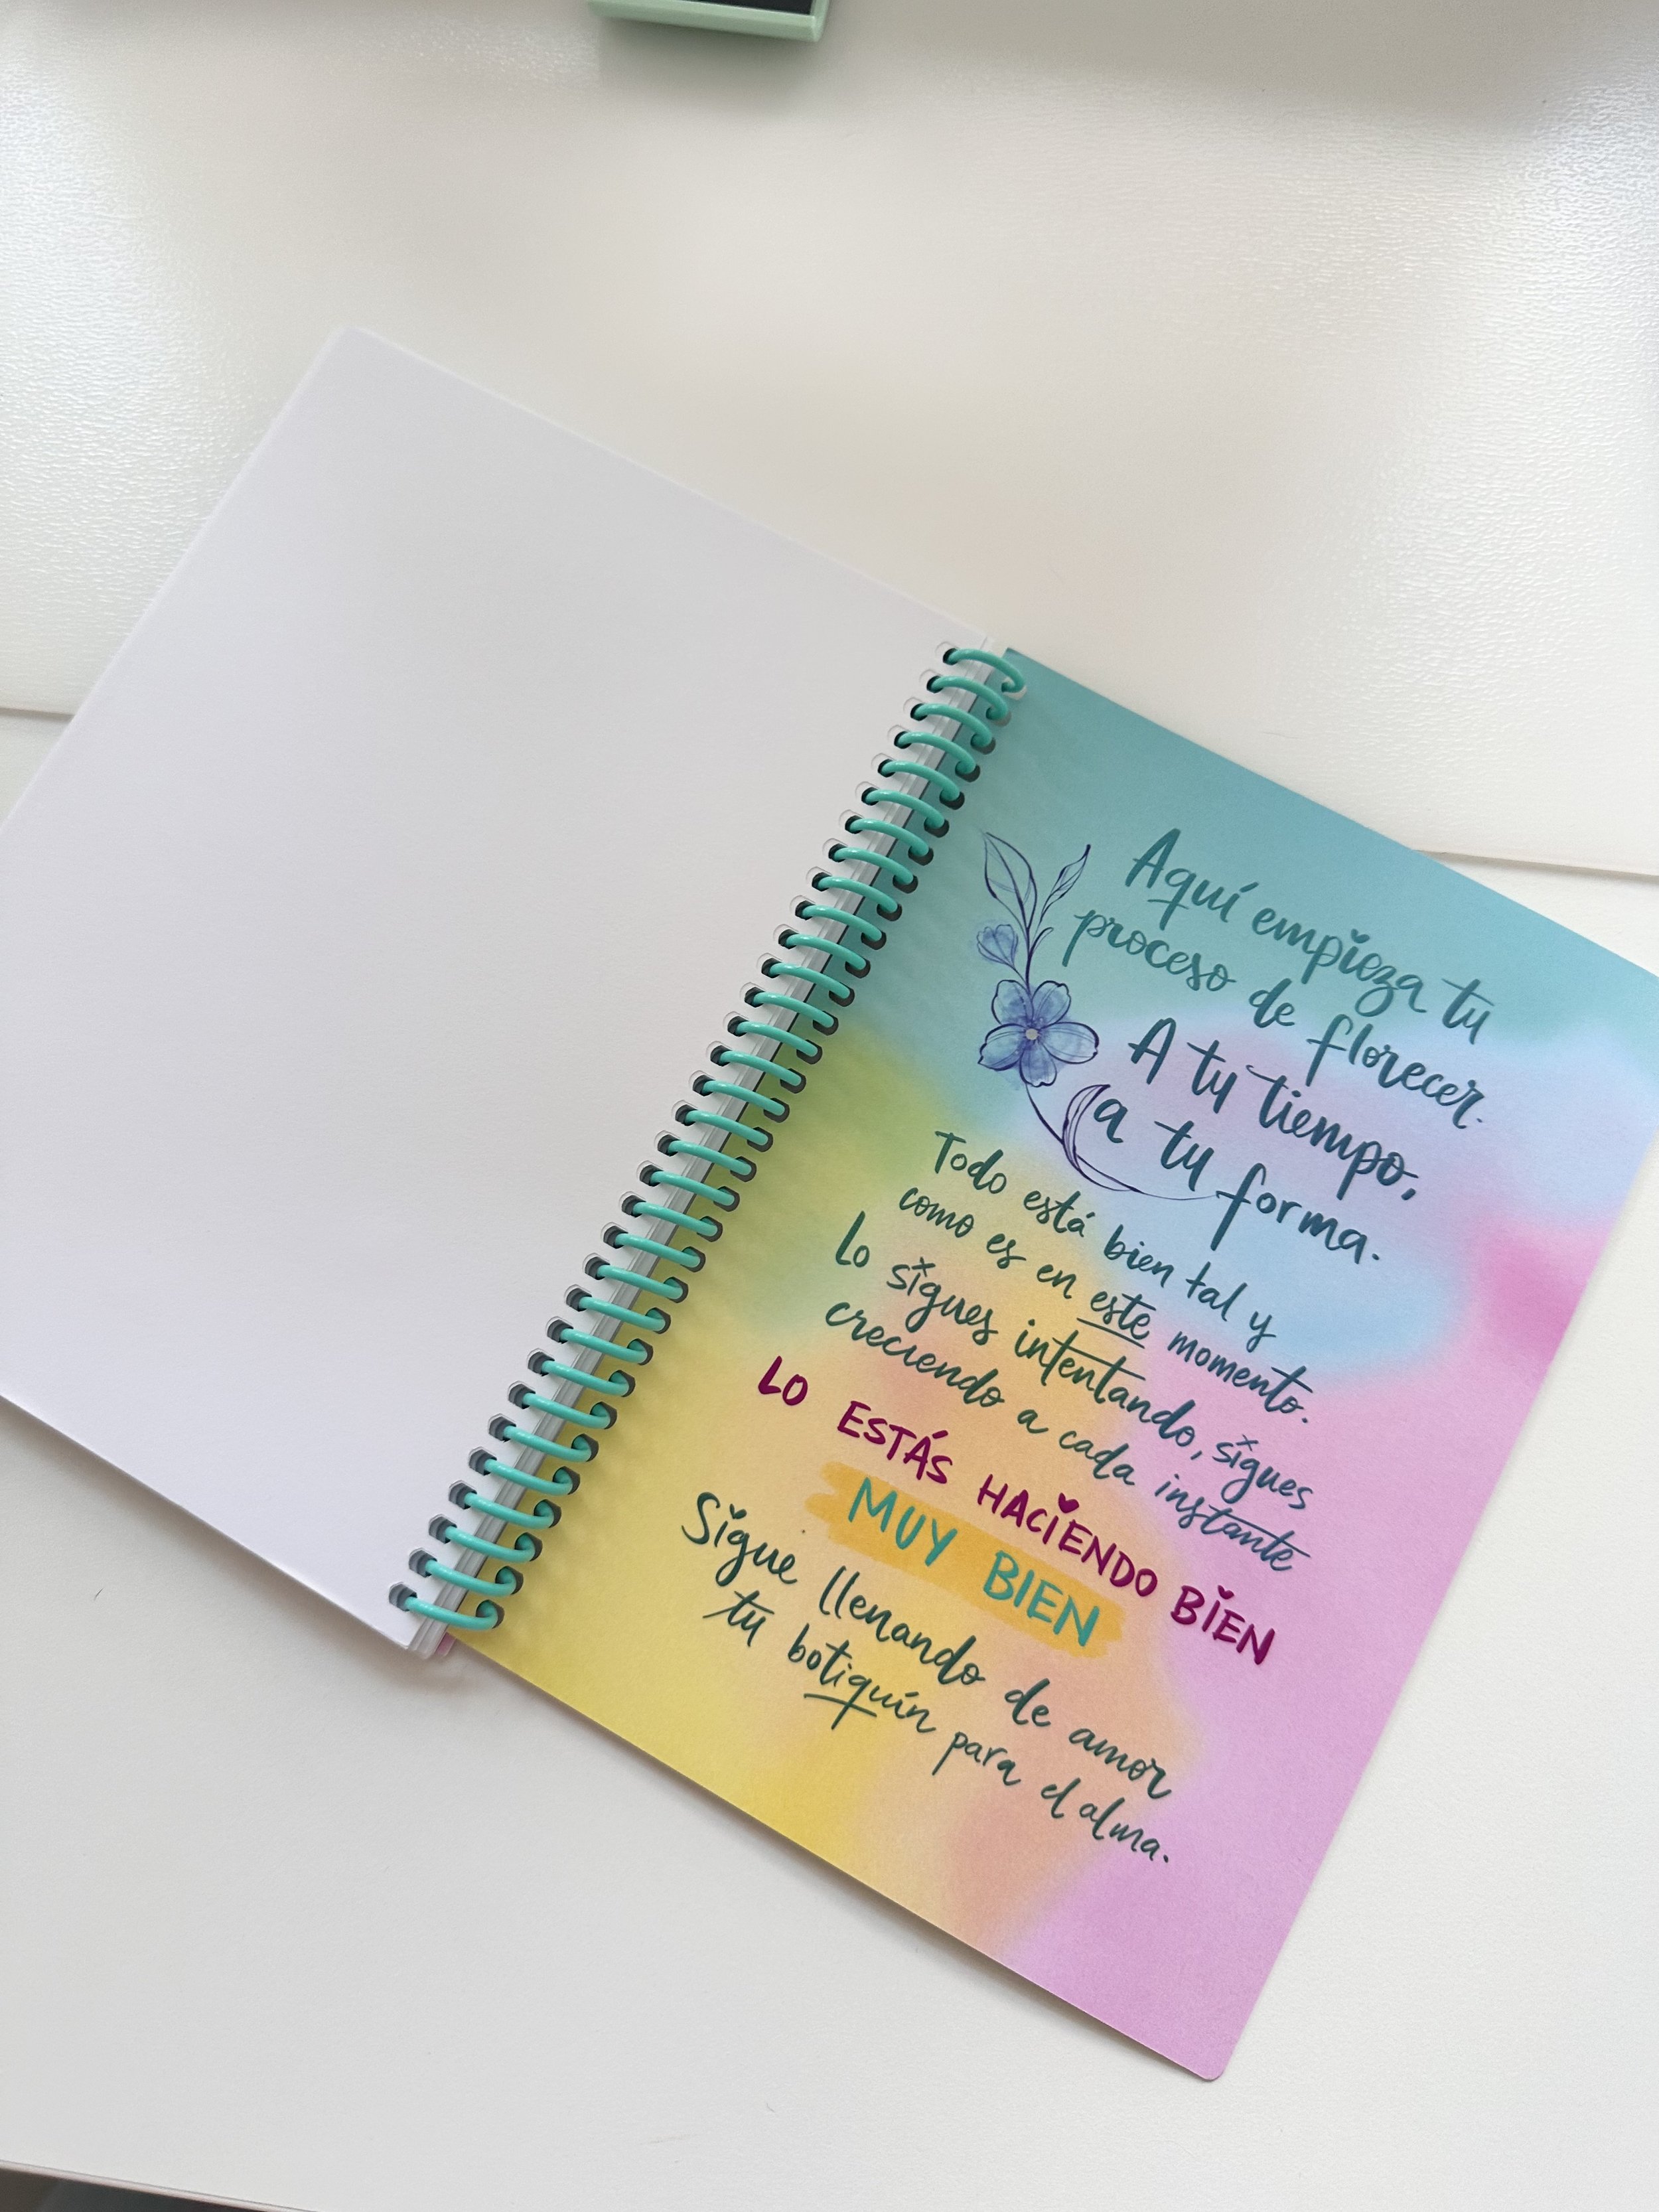 Aquí empieza tu
proceso de florecer.
A tu tiempo,
a tu forma.
Todo está bien tal y
como es en este momento.
Lo sigues intentando, sigues
creciendo a cada instante
LO ESTÁS HACIENDO BIEN
MUY BIEN
Sigue llenando de amor
tu botiquín para el alma.